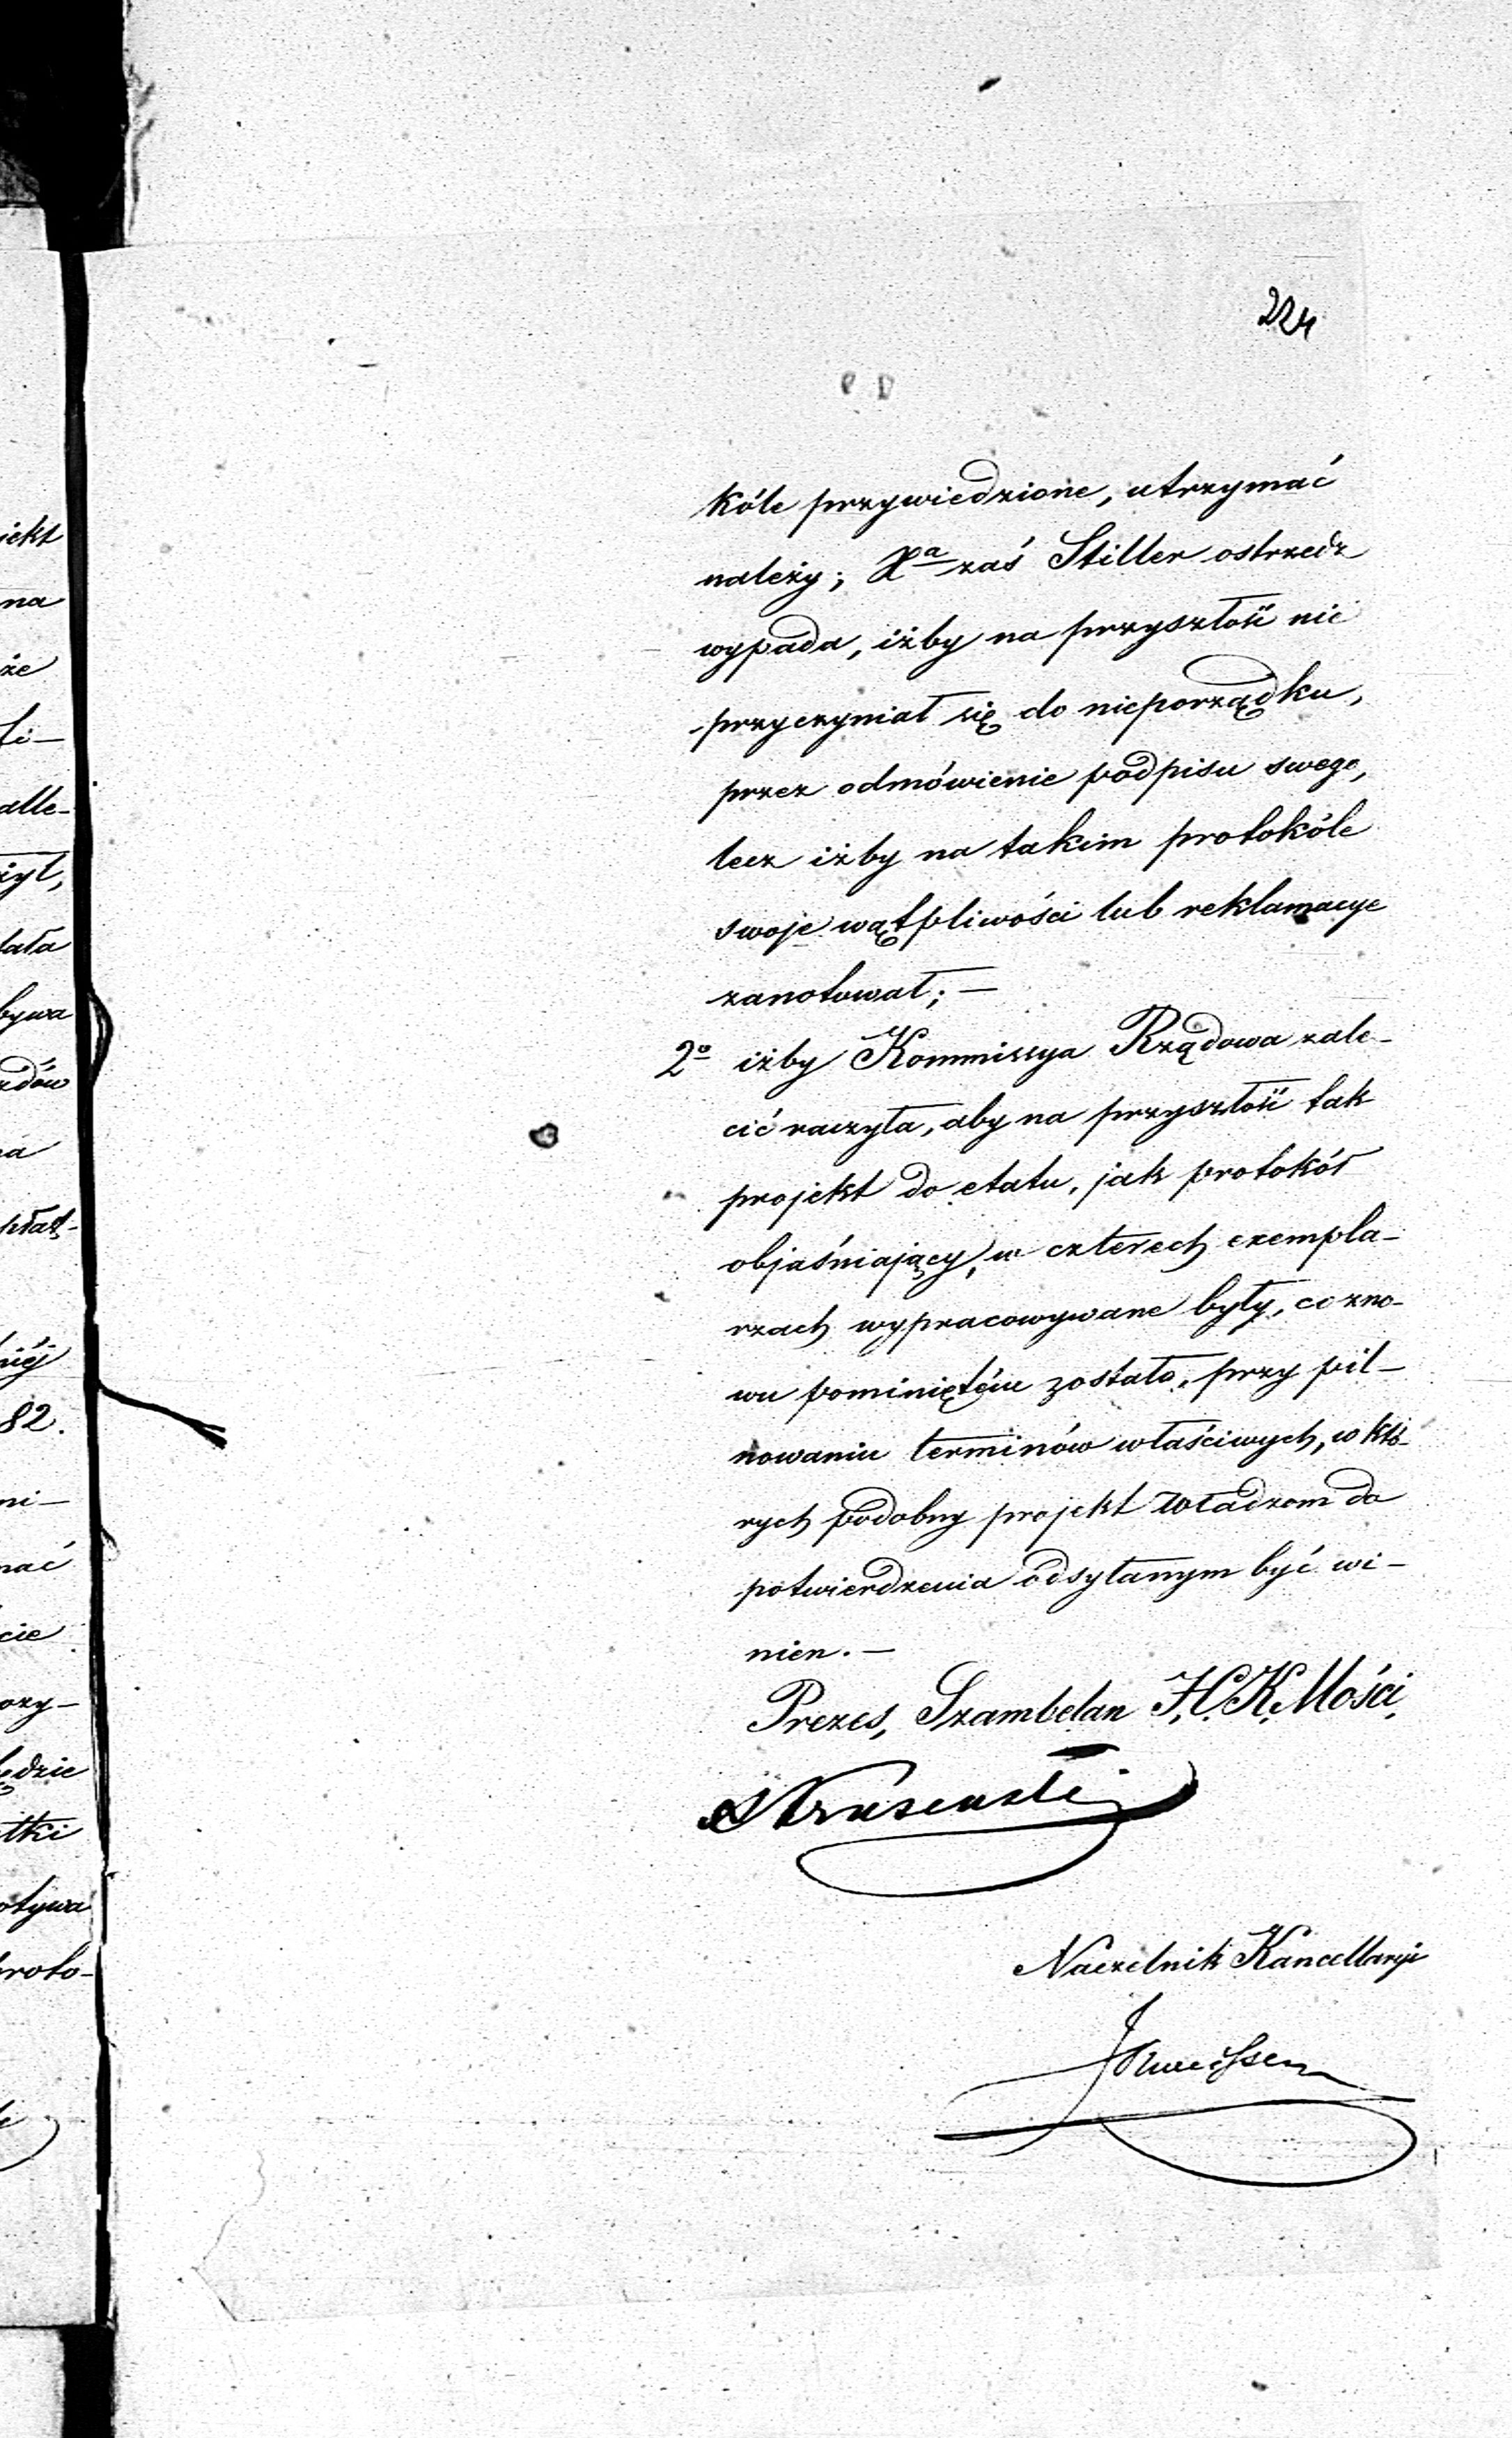 224
kóle przywiedzione, utrzymać
należy; Xa zaś Stiller ostrzedz
wypada, iżby na przyszłość nie
przyczyniał się do nieporządku,
przez odmówienie podpisu swego,
lecz iżby na takim protokóle
swoje wątpliwości lub reklamacye
zanotował; —
2o iżby Kommissya Rządowa zale-
cić raczyła, aby na przyszłość tak
projekt do etatu, jak protokół
objaśniający, w czterech exempla-
rzach wypracowywane były, co zno-
wu pominiętém zostało, przy pil-
nowaniu terminów właściwych, w któ-
rych podobny projekt Władzom do
potwierdzenia odsyłanym być wi-
nien. —
Prezes, Szambelan J.C.K.Mości,
Naczelnik Kancellaryi
iekt
na
że
alle-
żył,
bywa
82.
ni-
cie
będzie
proto-